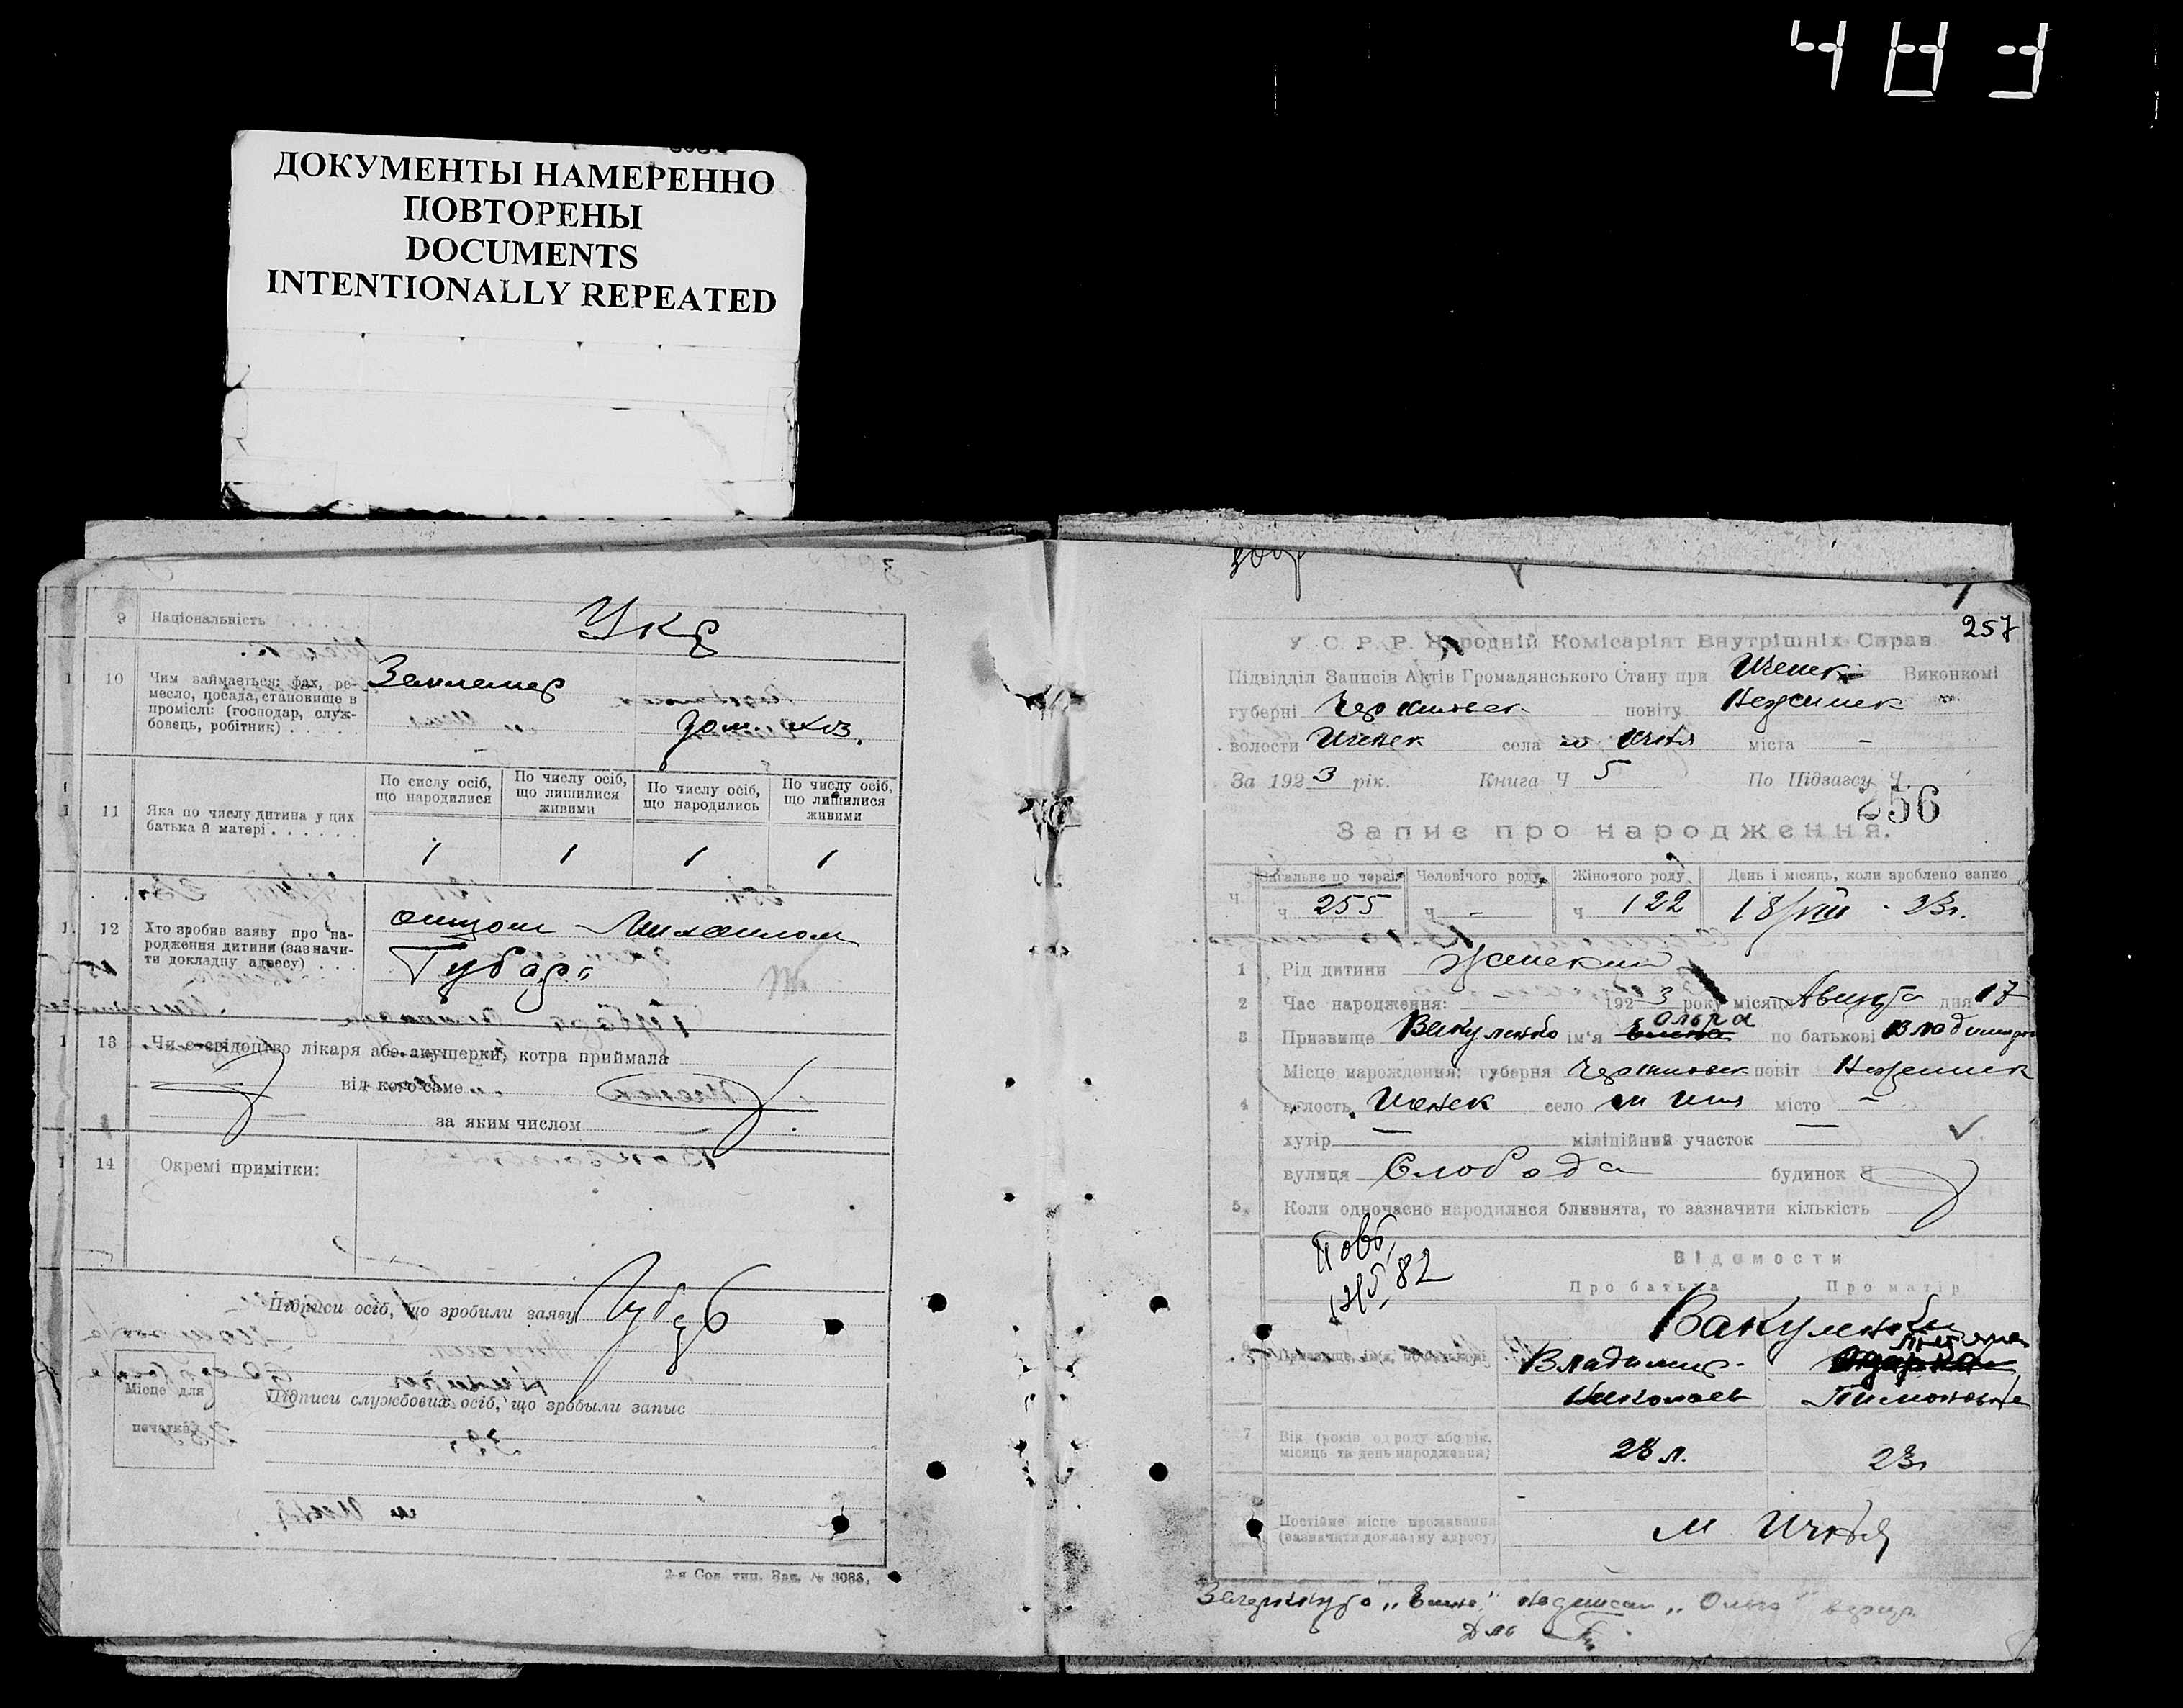 ДОКУМЕНТЫ НАМЕРЕННО
ПОВТОРЕНЫ
DOCUMENTS
INTENTIONALLY REPEATED
9 Національність Укр
10 Чим займається: фах, ре-
месло, посада, становище в
промислі: (господар, служ-
бовець, робітник)
Землемер
дом. хоз.
11 Яка по числу дитина у цих
батька й матері
По сислу осіб,
що народилися
По числу осіб,
що лишилися
живими
По числу осіб,
що народились
По числу осіб,
що лишилися
живими
1 1 1 1
12 Хто зробив заяву про на-
родження дитини (зазначи-
ти докладну адресу)
отцом Михаилом
Губарь
13 Чи є свідоцтво лікаря або акушерки, котра приймала
від кого саме
за яким числом
14 Окремі примітки:
Підписи осіб, що зробили заяву
Місце для
печатки
Підписи службових осіб, що зробыли запыс
2-я Сов. тип. Зак. № 3086.
257
У. С. Р. Р. Народній Комісаріят Внутрішніх Справ
Підвідділ Записів Актів Громадянського Стану при Иченск Виконкомі
губерні Черниговск повіту Нежинск
волости Иченск села м Ичня міста -
За 1923 рік. Книга Ч 5 По Підзагсу Ч.
256
Запис про народження.
Загальне по черзі Человічого роду Жіночого роду День і місяць, коли зроблено запис
Ч ч 255 ч - ч 122 18/VIII - 23г.
1 Рід дитини женский
2 Час народження: 1923 року місяця Августа дня 17
Ольга
3 Призвище Вакуленко ім'я Елена по батькові Владимир
Місце народження: губерня Черниговск повіт Нежинск
4 волость Иченск село м Ичня місто -
хутір — міліційний участок —
вулиця Слобода будинок Ч
5. Коли одночасно народилися близнята, то зазначити кількість
Повт.
82
Відомости
Про батька Про матір
Вакуленко
Призвище, ім'я, по батькові
Владимир
Николаев
Одарка
Тимоновна
7 Вік (років од роду або рік,
місяць та день народження)
28 л. 23г
Постійне місце проживання
(зазначити докладну адресу)
м Ичня
Зачеркнуто „Елена" надписан „Ольга" верить